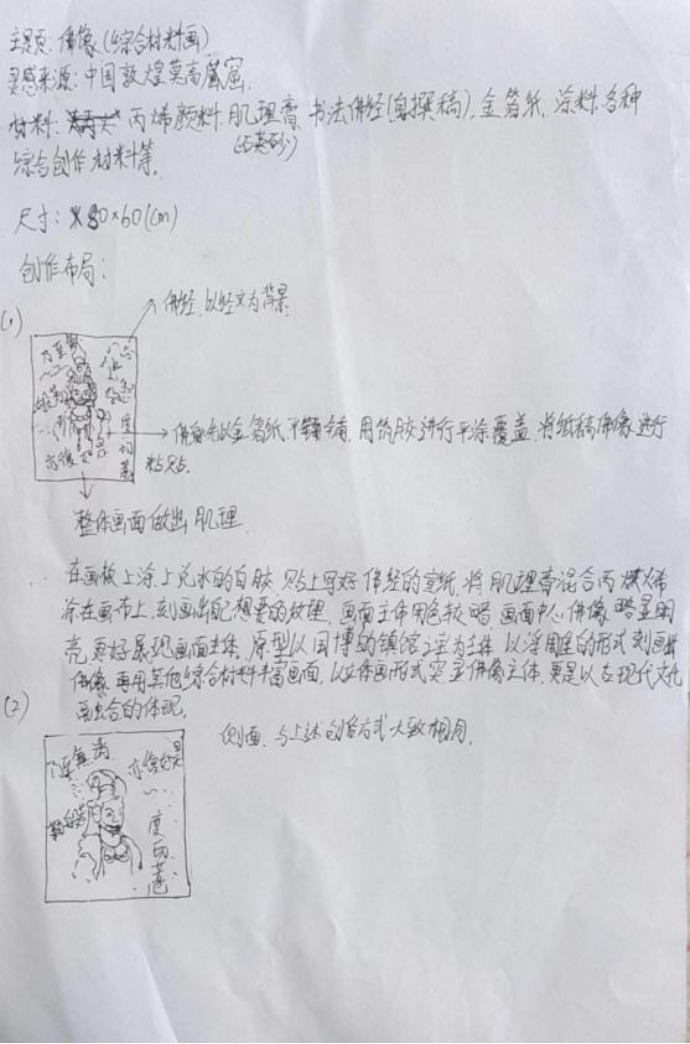 主题: 佛像(综合材料画)
灵感来源: 中国敦煌莫高窟.
材料: 丙烯颜料. 肌理膏 书法佛经(自撰稿). 金箔纸. 涂料. 各种
(石英砂)
综合创作材料等.
尺寸: 80×60(cm)
创作布局:
(1)
佛经, 以经文为背景.
佛身先以金箔纸平铺, 用乳胶进行平涂覆盖. 将纸稿佛像进行
粘贴.
整体画面做出肌理.
在画板上涂上兑水的白胶. 贴上写好佛经的宣纸. 将肌理膏混合丙烯
涂在画布上, 刻画出自己想要的纹理. 画面主体用色较暗 画面中心佛像略显明
亮, 更好展现画面主体. 原型以国博的镇馆之宝为主体 以浮雕的形式刻画出
佛像 再用其他综合材料丰富画面, 以立体画形式突显佛像主体, 更是以古现代文化
融合的体现.
(2)
侧面. 与上述创作方式大致相同.